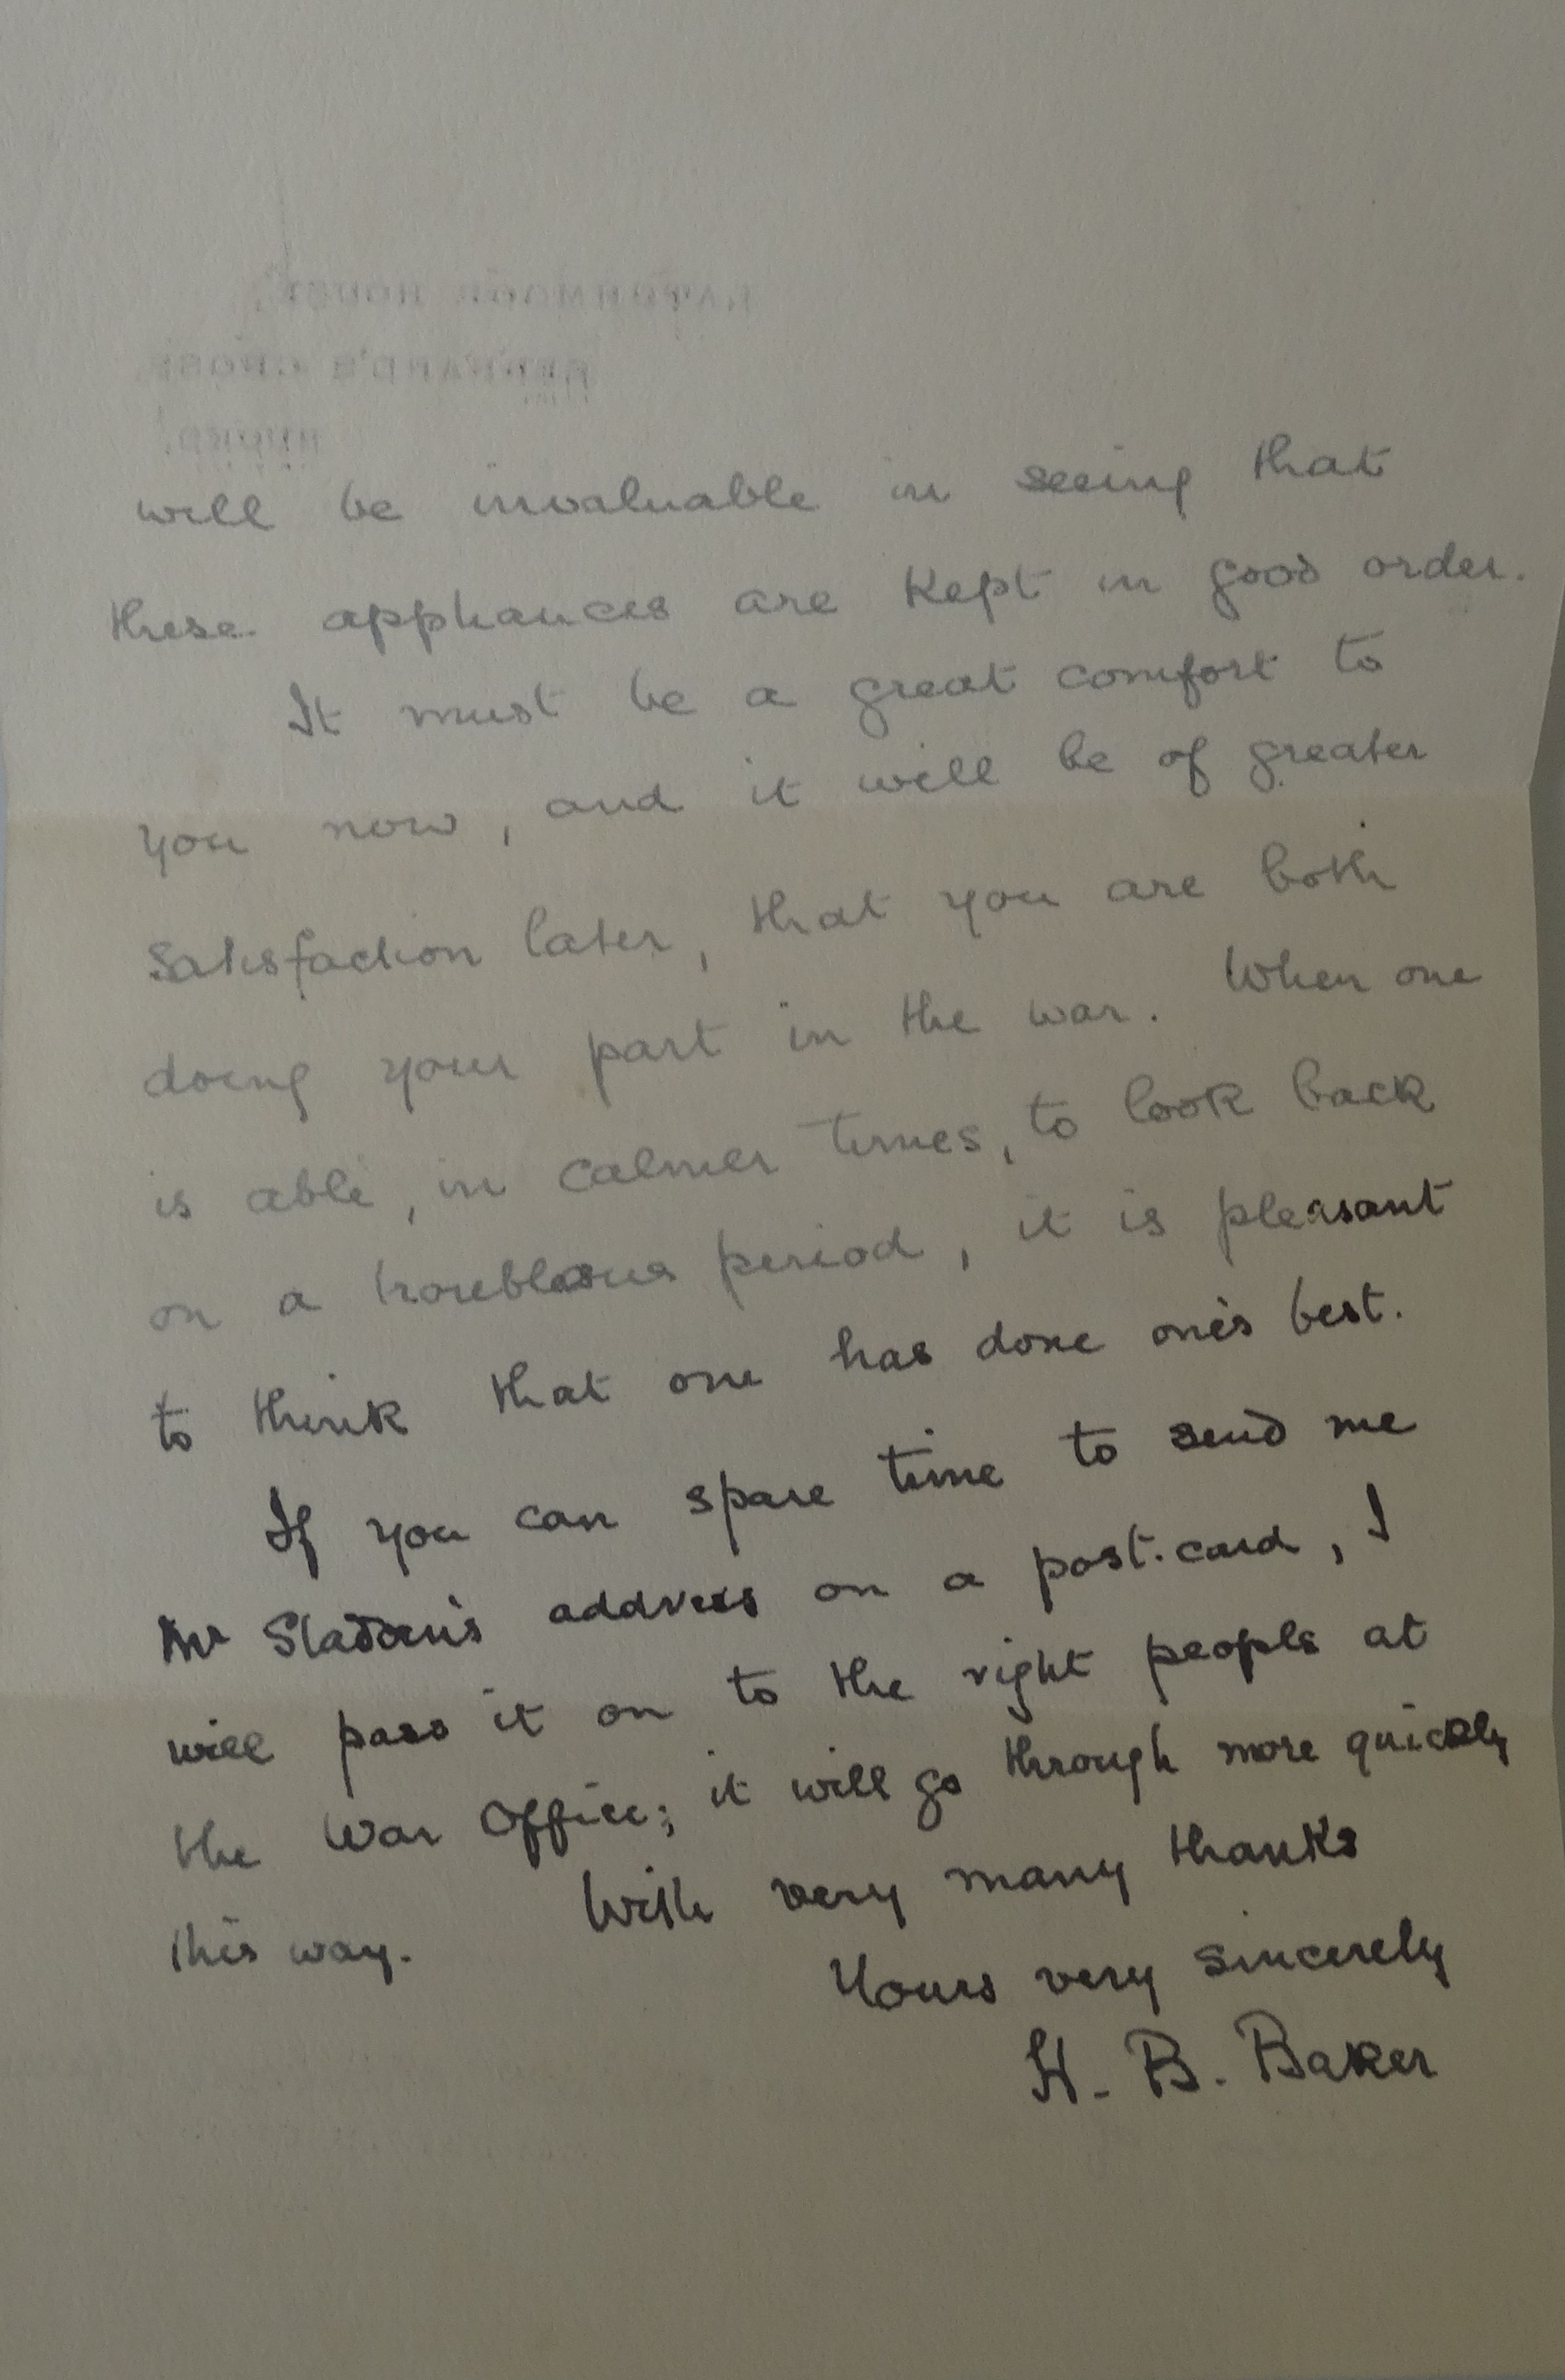 will be invaluable in seeing that
these appliances are kept in good order.
It must be a great comfort to
you now, and it will be of greater
satisfaction later, that you are both
doing your part in the war. When one
is able, in calmer times, to look back
on a troublous period, it is pleasant
to think that one has done one's best.
If you can spare time to send me
Mr Sladden's address on a post-card, I
will pass it on to the right people at
the War Office; it will go through more quickly
this way. With very many thanks
Yours very sincerely
H. B. Baker